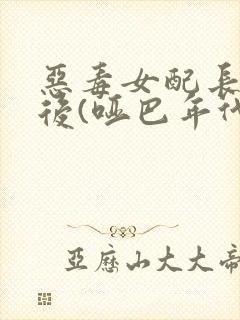 惡毒女配長
後(啞巴年代
亞歷山大大帝